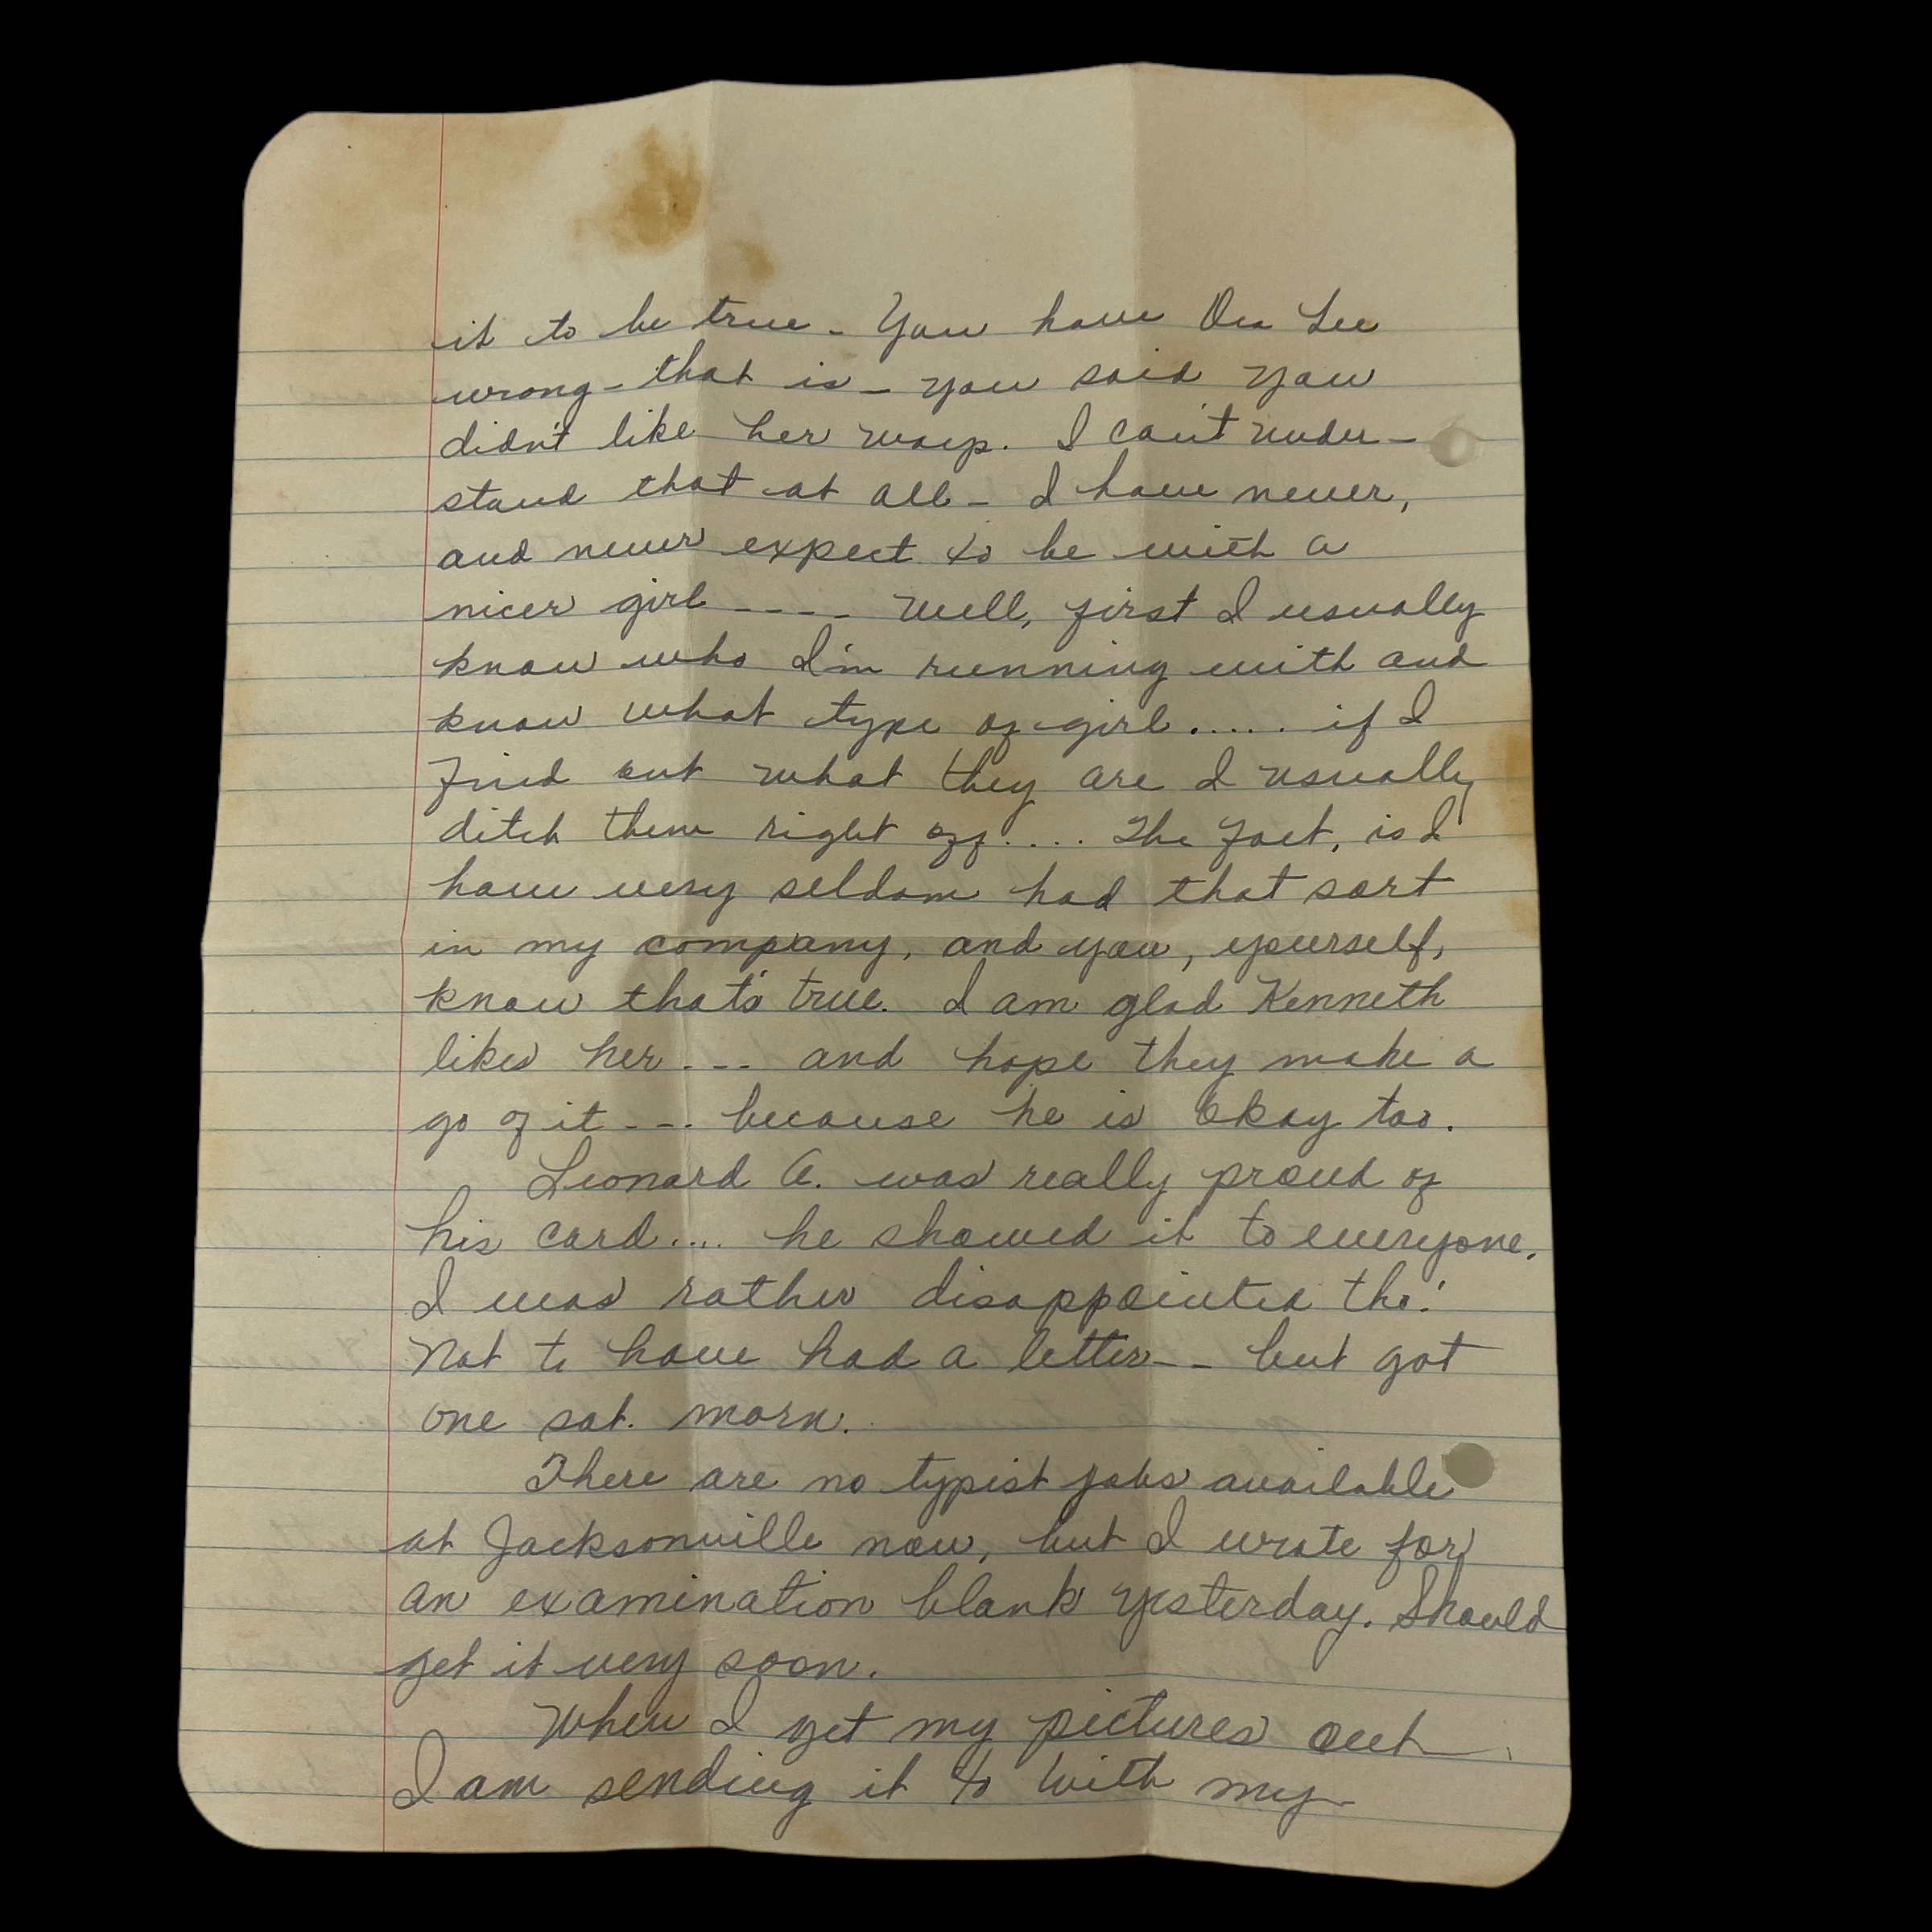 it to be true - You have Ora Lee
wrong - that is - you said you
didn't like her ways. I can't under-
stand that at all - I have never,
and never expect to be with a
nicer girl ---- Well, first I usually
know who I'm running with and
know what type of girl ..... if I
find out what they are I usually
ditch them right off .... The fact, is I
have very seldom had that sort
in my company, and you, yourself,
know that's true. I am glad Kenneth
likes her --- and hope they make a
go of it --- because he is okay too.
Leonard A. was really proud of
his card .... he showed it to everyone.
I was rather disappointed tho'.
Not to have had a letter -- but got
one sat. morn.
There are no typist jobs available
at Jacksonville now, but I wrote for
an examination blank yesterday. Should
get it very soon.
When I get my pictures out
I am sending it to with my